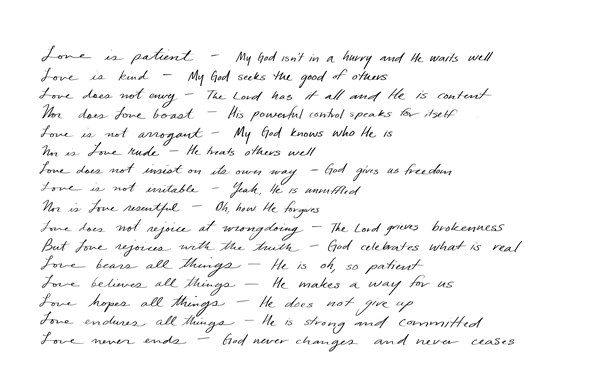 Love is patient - My God isn't in a hurry and He waits well
Love is kind - My God seeks the good of others
Love does not envy - The Lord has it all and He is content
Nor does Love boast - His powerful control speaks for itself
Love is not arrogant - My God knows who He is
Nor is Love rude - He treats others well
Love does not insist on its own way - God gives us freedom
Love is not irritable - Yeah, He is unruffled
Nor is Love resentful - Oh, how He forgives
Love does not rejoice at wrongdoing - The Lord grieves brokenness
But Love rejoices with the truth - God celebrates what is real
Love bears all things - He is oh, so patient
Love believes all things - He makes a way for us
Love hopes all things - He does not give up
Love endures all things - He is strong and committed
Love never ends - God never changes and never ceases